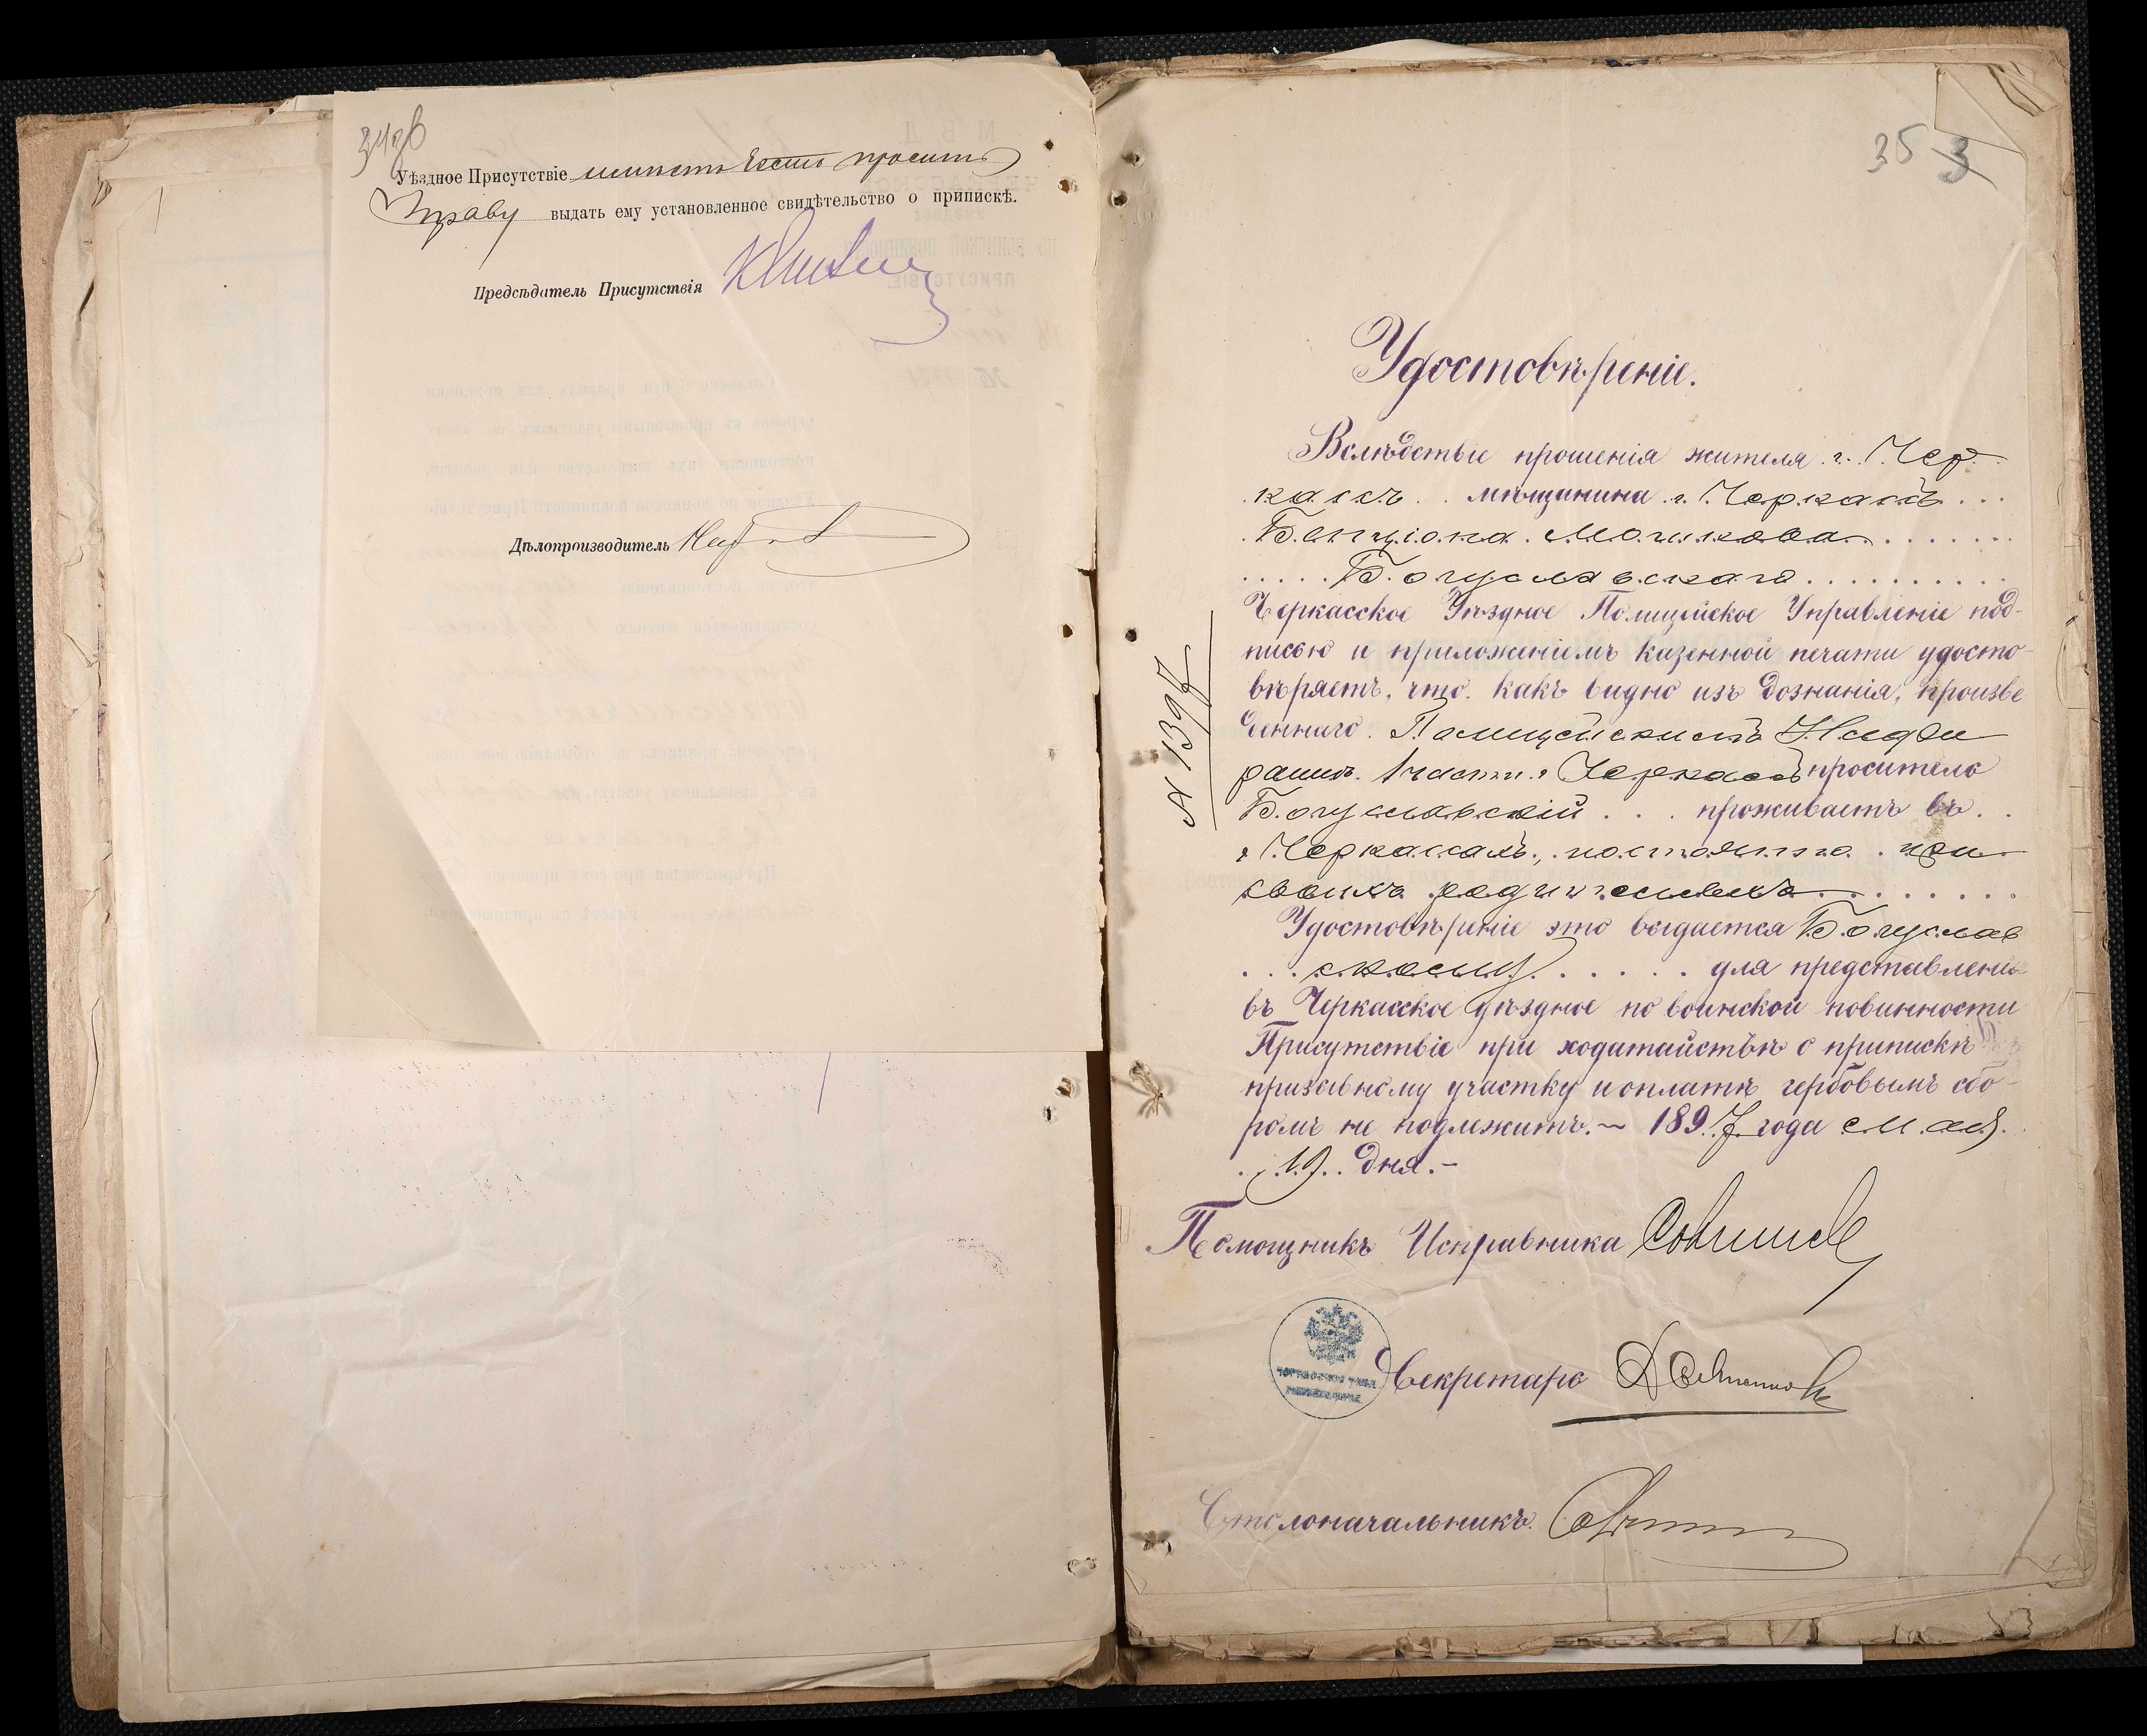 34об
Уѣздное Присутствіе имѣетъ честь просить
Управу выдать ему установленное свидѣтельство о припискѣ.
Предсѣдатель Присутствія
Дѣлопроизводитель
35 3
Удостовѣреніе.
Вслѣдствіе прошенія жителя г. Чер
кассъ мѣщанина г. Черкассъ
Бенціона Мошкова
Богуславскаго
Черкасское Уѣздное Полицейское Управленіе под-
писью и приложеніемъ казенной печати удосто-
вѣряетъ, что какъ видно изъ дознанія, произве
деннаго Полицейскимъ Надзи
рателемъ 1 части г. Черкассъ проситель
Богуславскій проживаетъ въ
г. Черкассахъ, постоянно при
своихъ родителяхъ
Удостовѣреніе это выдается Богуслав
скому для представленія
въ Черкасское уѣздное по воинской повинности
Присутствіе при ходатайствѣ о припискѣ
призывному участку и оплатѣ гербовымъ сбо-
ромъ не подлежитъ.~ 1897 года мая
19 дня.-
№ 1397
Помощникъ Исправника
Секретарь
Столоначальникъ